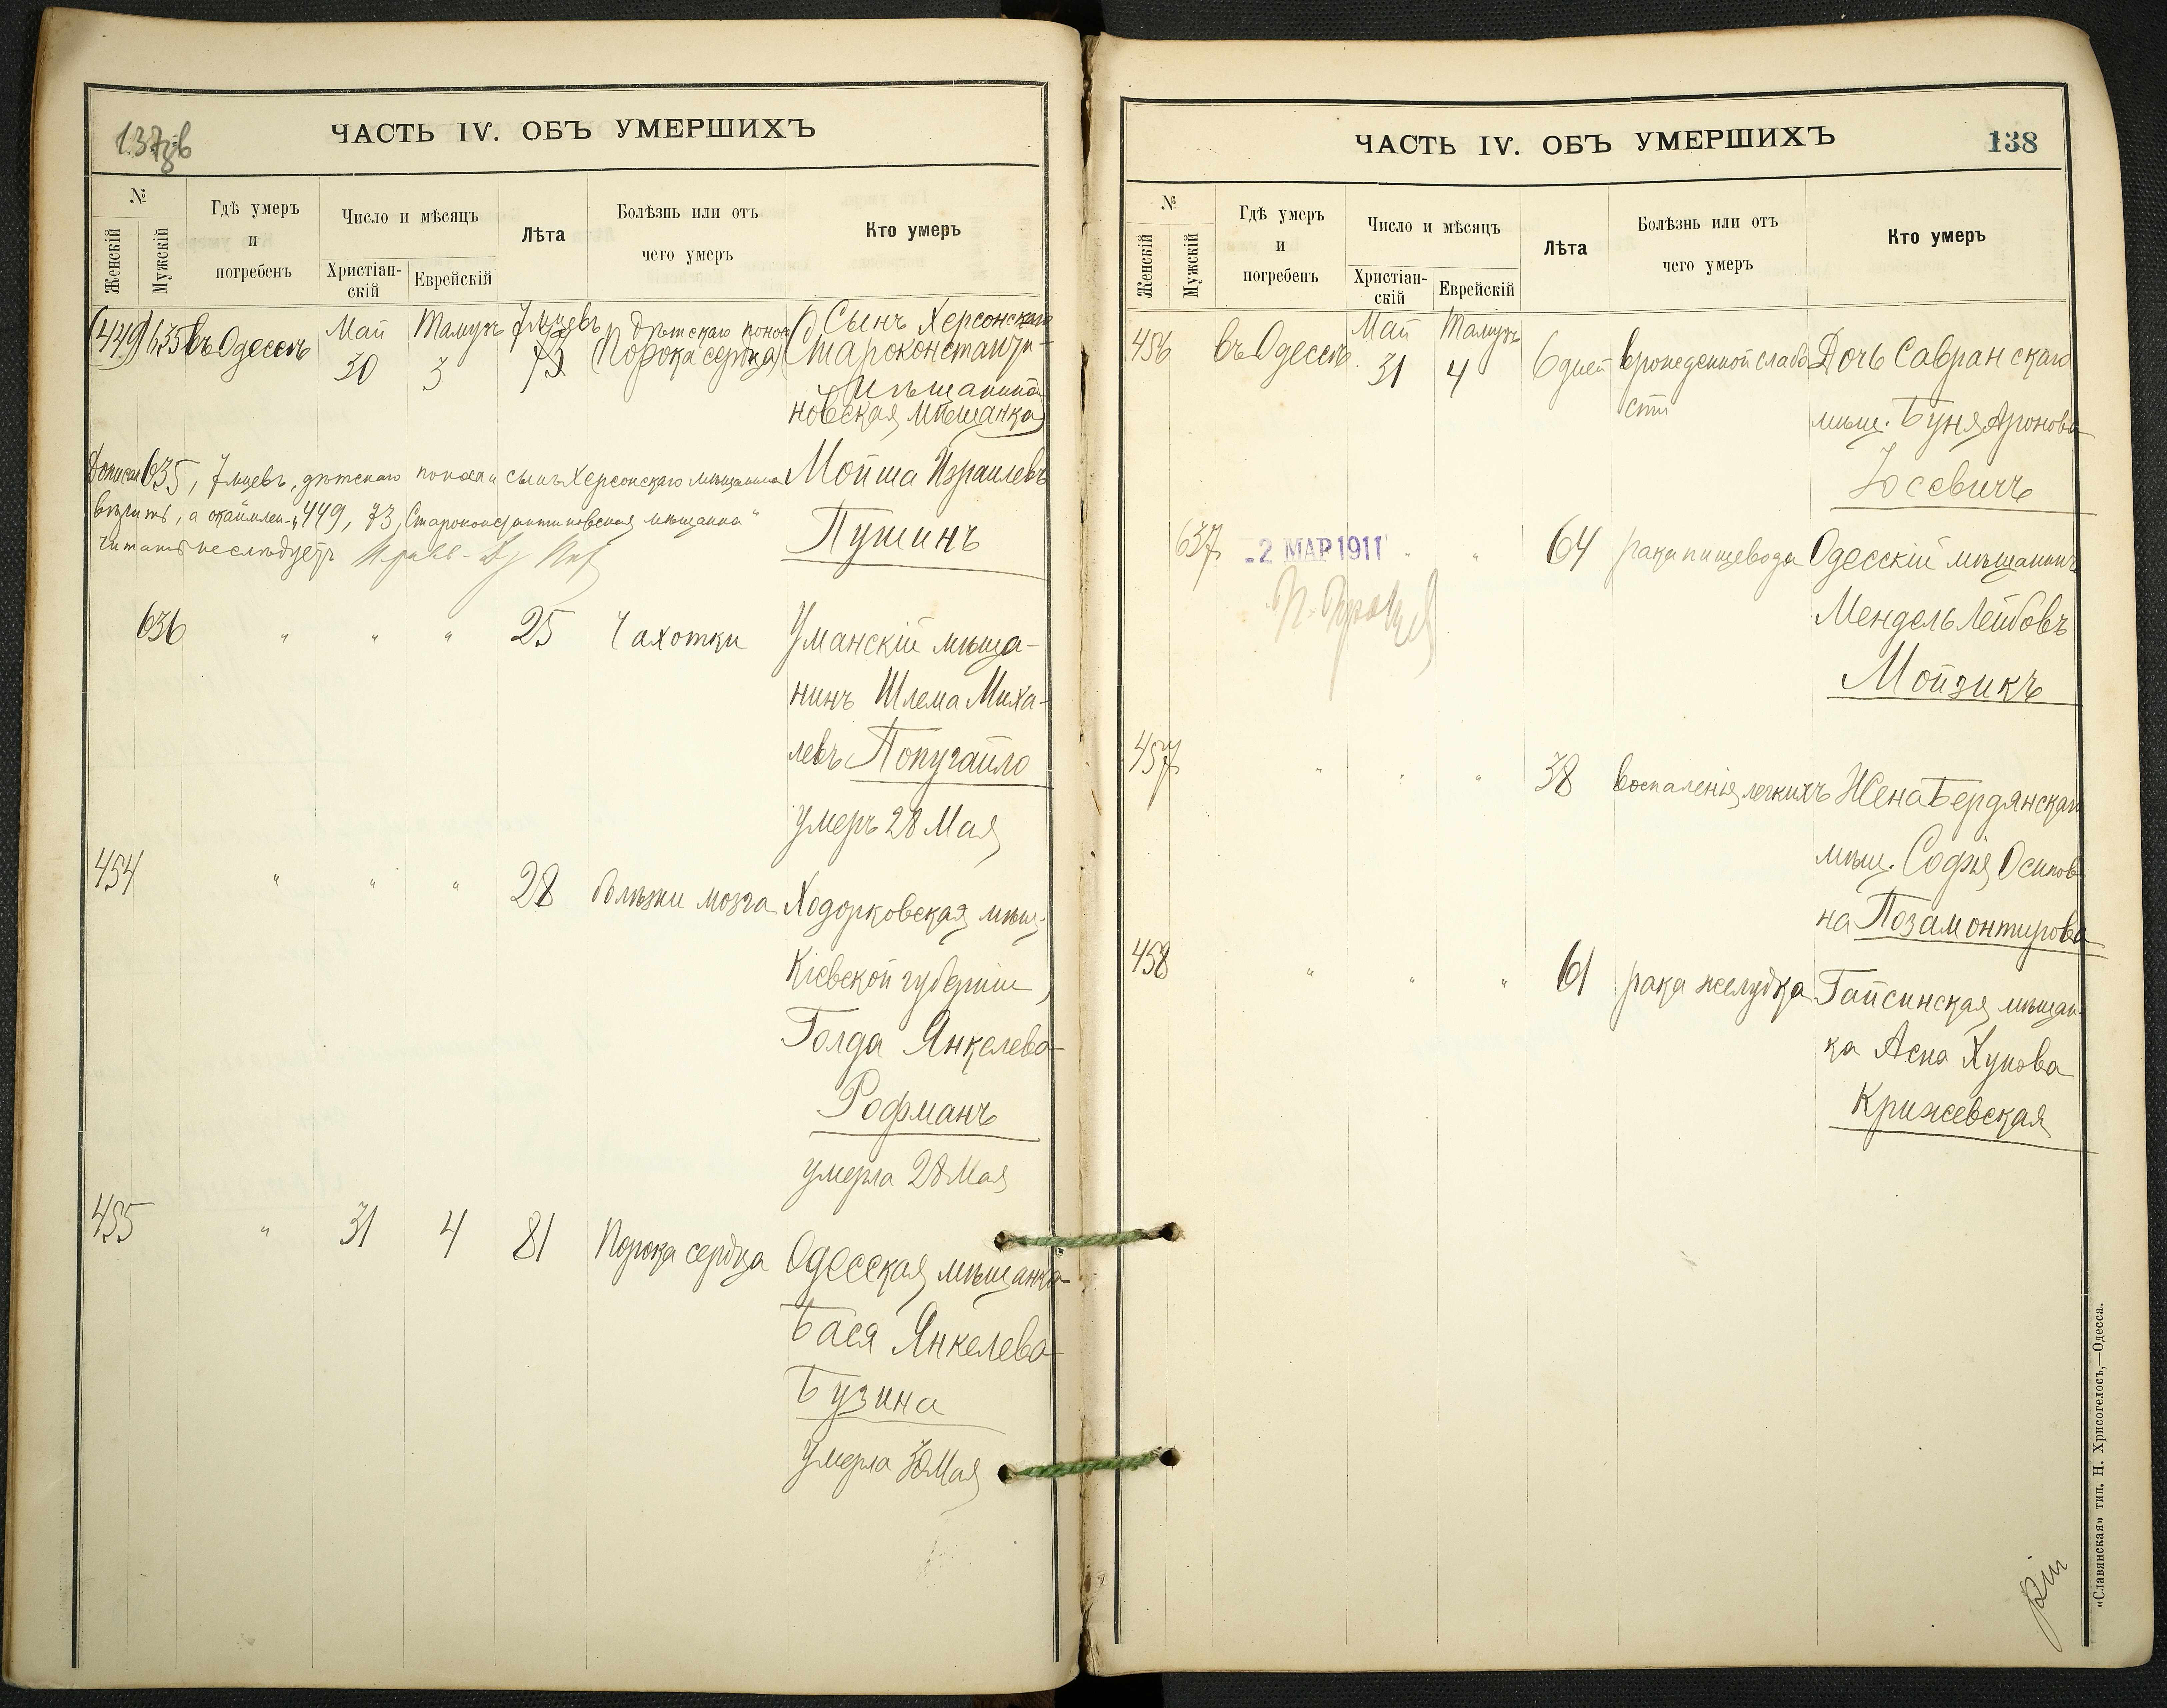 ЧАСТЬ IV. ОБЪ УМЕРШИХЪ
№
Женскій
Мужскій
Гдѣ умеръ
и
погребенъ
Число и мѣсяцъ
Христіан-
скій
Еврейскій
Лѣта
Болѣзнь или отъ
чего умеръ
Кто умеръ
(449) 635 въ Одессѣ Май Тамузъ 7 мцевъ дѣтскаго поноса Сынъ Херсонскаго
30 3 73 (Порока сердца) (Староконстанти-
мѣщанина
новская мѣщанка)
635, 7 мцевъ, дѣтскаго поноса и сынъ Херсонскаго мѣщанина Мойша Израилевъ
вѣрить, а окаймлен. „449, 73, Староконстантиновская мѣщанка" Пушинъ
читать не слѣдуетъ
636 " " " 25 Чахотки Уманскій мѣща-
нинъ Шлема Миха-
левъ Попугайло
умеръ 28 Мая
454 " " " 28 болѣзни мозга Ходорковская мѣщ.
Кіевской губерніи,
Голда Янкелева
Рофманъ
умерла 28 Мая
455 " 31 4 81 Порока сердца Одесская мѣщанка
Бася Янкелева
Бузина
умерла 30 Мая
ЧАСТЬ IV. ОБЪ УМЕРШИХЪ
138
№
Женскій
Мужскій
Гдѣ умеръ
и
погребенъ
Число и мѣсяцъ
Христіан-
скій
Еврейскій
Лѣта
Болѣзнь или отъ
чего умеръ
Кто умеръ
456 въ Одессѣ Май Тамузъ 6 дней врожденной слабо Дочь Савранскаго
31 4 сти
мѣщ. Буня Аронова
Юсевичъ
637 -2 МАР 1911 " " 64 рака пищевода Одесскій мѣщанинъ
Мендель Лейбовъ
Мойзикъ
457 " " " 38 воспаленія легкихъ Жена Бердянскаго
мѣщ. Софія Осипов
на Позамонтирова
458 " " " 61 рака желудка Гайсинская мѣщан-
ка Асна Хунова
Крижевская
«Славянская» тип. Н. Хрисогелосъ,—Одесса.